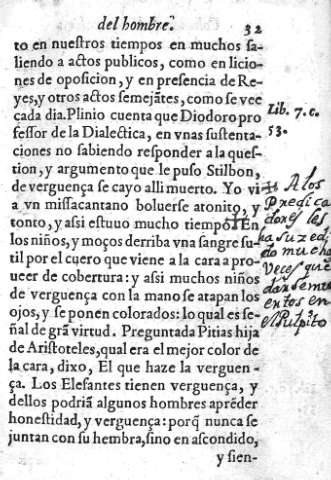 del hombre.
32
to en nueſtros tiempos en muchos ſa-
liendo a actos publicos, como en licio-
nes de opoſicion, y en preſencia de Re-
yes, y otros actos ſemejãtes, como ſe vee
cada dia. Plinio cuenta que Diodoro pro
feſſor de la Dialectica, en vnas ſuſtenta-
ciones no ſabiendo reſponder a la queſ-
tion, y argumento que le puſo Stilbon,
de verguença ſe cayo alli muerto. Yo vi
a vn miſſacantano boluerſe atonito, y
tonto, y aſsi eſtuuo mucho tiempo. En
los niños, y moços derriba vna ſangre ſu-
til por el cuero que viene a la cara a pro-
ueer de cobertura: y aſsi muchos niños
de verguença con la mano ſe atapan los
ojos, y ſe ponen colorados: lo qual es ſe-
ñal de grã virtud. Preguntada Pitias hija
de Ariſtoteles, qual era el mejor color de
la cara, dixo, El que haze la verguen-
ça. Los Elefantes tienen verguença, y
dellos podriã algunos hombres aprẽder
honeſtidad, y verguença: porq̃ nunca ſe
juntan con ſu hembra, ſino en aſcondido,
y sien-
Lib. 7. c.
53.
A los
Predica
dores les
ha suzedi
do mucha
Veces que
en el
Pulpito